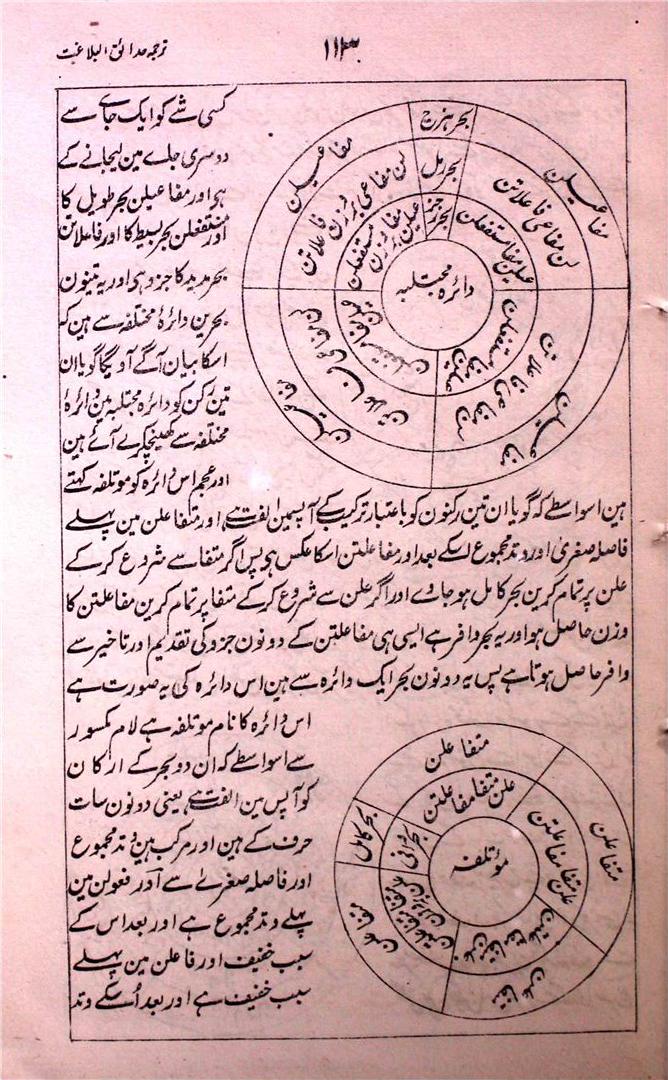 ترجمہ حدائق البلاغت
۱۱۳
کسی شے کو ایک جاے سے
دوسری جاے مین لیجانے کے
ہی اور مفاعیلن بحر طویل کا
اور مستفعلن بحر بسیط کا اور فاعلاتن
بحر مدید کا جزو ہی اور یہ تینون
بحرین دائرۂ مختلفہ سے ہین کہ
اسکا بیان آگے آویگا گویا ان
تین رکن کو دائرہ مجتلبہ مین دائرۂ
مختلفہ سے کھینچکر لے آئے ہین
اور عجم اس دائرہ کو موتلفہ کہتے
بحر ہزج
بحر رمل
بحر رجز
مفاعیلن
لن مفاعی بوزن فاعلاتن
عیلن مفا بوزن مستفعلن
مفاعیلن
لن مفاعی فاعلاتن
عیلن مفا مستفعلن
مفاعیلن
لن مفاعی فاعلاتن
عیلن مفا مستفعلن
مفاعیلن
لن مفاعی فاعلاتن
عیلن مفا مستفعلن
دائرہ مجتلبہ
ہین اسواسطے کہ گویا ان تین رکنون کو باعتبار ترکیب کے آپسمین الفت ہے اور متفاعلن مین پہلے
فاصلہ صغریٰ اور وتد مجموع اسکے بعد اور مفاعلتن اسکا عکس ہی پس اگر متفا سے شروع کر کے
علن پر تمام کرین بحر کامل ہو جاوے اور اگر علن سے شروع کر کے متفا پر تمام کرین مفاعلتن کا
وزن حاصل ہو اور یہ بحر وافر ہے ایسی ہی مفاعلتن کے دونون جزو کی تقدیم اور تاخیر سے
وافر حاصل ہوتا ہے پس یہ دونون بحر ایک دائرہ سے ہین اس دائرہ کی یہ صورت ہے
اس دائرہ کا نام موتلفہ ہے لام مکسور
سے اسواسطے کہ ان دو بحر کے ارکان
کو آپس مین الفت ہے یعنی دونون سات
حرف کے ہین اور مرکب ہین وتد مجموع
اور فاصلہ صغرے سے اور فعولن مین
پہلے وتد مجموع ہے اور بعد اس کے
سبب خفیف اور فاعلن مین پہلے
سبب خفیف ہے اور بعد اُسکے وتد
متفاعلن
علن متفا مفاعلتن
متفاعلن
علن متفا مفاعلتن
متفاعلن
علن متفا مفاعلتن
متفاعلن
علن متفا بوزن مفاعلتن
بحر کامل
بحر وافر
موتلفہ